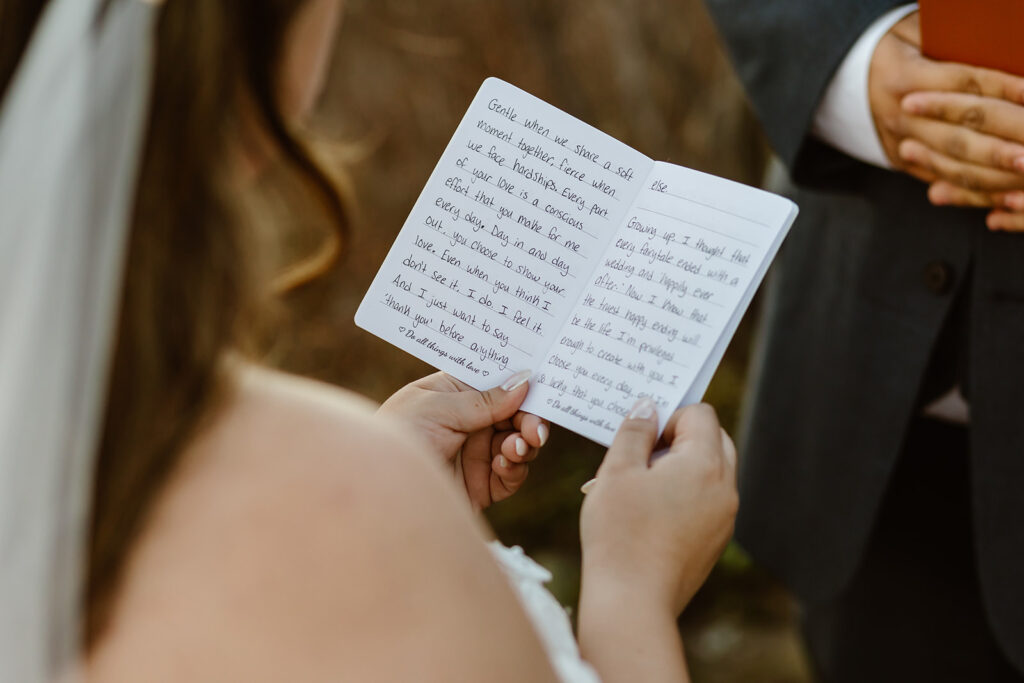 Gentle when we share a soft
moment together, fierce when
we face hardships. Every part
of your love is a conscious
effort that you make for me
every day. Day in and day
out, you choose to show your
love. Even when you think I
don't see it, I do. I feel it.
And I just want to say
'thank you' before anything
♡ Do all things with love ♡
else
Growing up, I thought that
every fairytale ended with a
wedding and 'happily ever
after.' Now I know that
the truest happy ending will
be the life I'm privileged
enough to create with you. I
choose you every day, and I'm
lucky that you choose
♡ Do all things with love